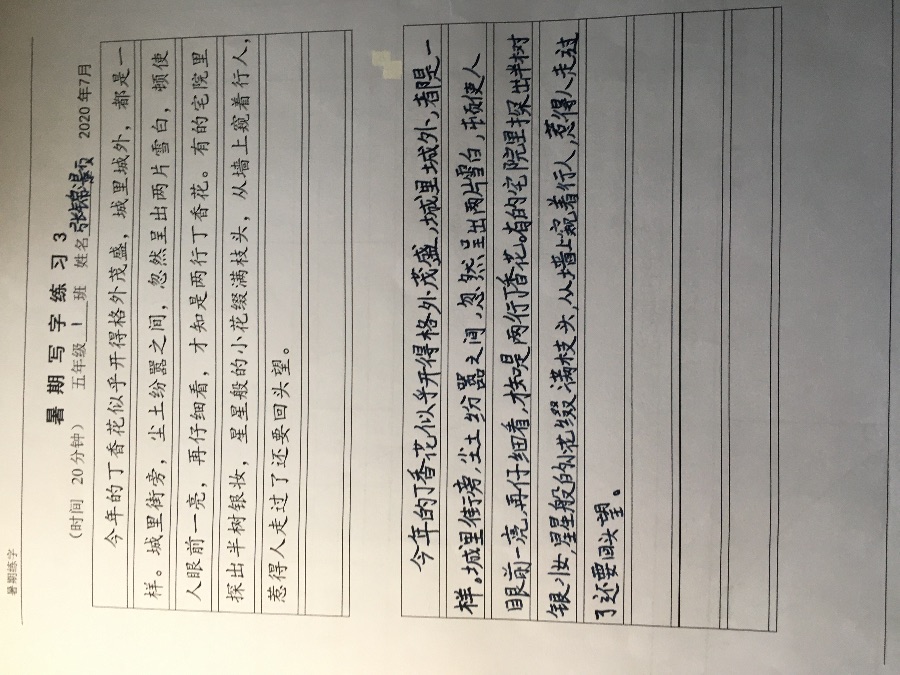 暑期练字
暑 期 写 字 练 习 3
（时间 20分钟） 五年级 1 班 姓名 张锦灏 2020年7月
今年的丁香花似乎开得格外茂盛，城里城外，都是一
样。城里街旁，尘土纷嚣之间，忽然呈出两片雪白，顿使
人眼前一亮，再仔细看，才知是两行丁香花。有的宅院里
探出半树银妆，星星般的小花缀满枝头，从墙上窥着行人，
惹得人走过了还要回头望。
今年的丁香花似乎开得格外茂盛，城里城外，都是一
样。城里街旁，尘土纷嚣之间，忽然呈出两片雪白，顿使人
眼前一亮，再仔细看，才知是两行丁香花。有的宅院里探出半树
银妆，星星般的小花缀满枝头，从墙上窥着行人，惹得人走过
了还要回头望。